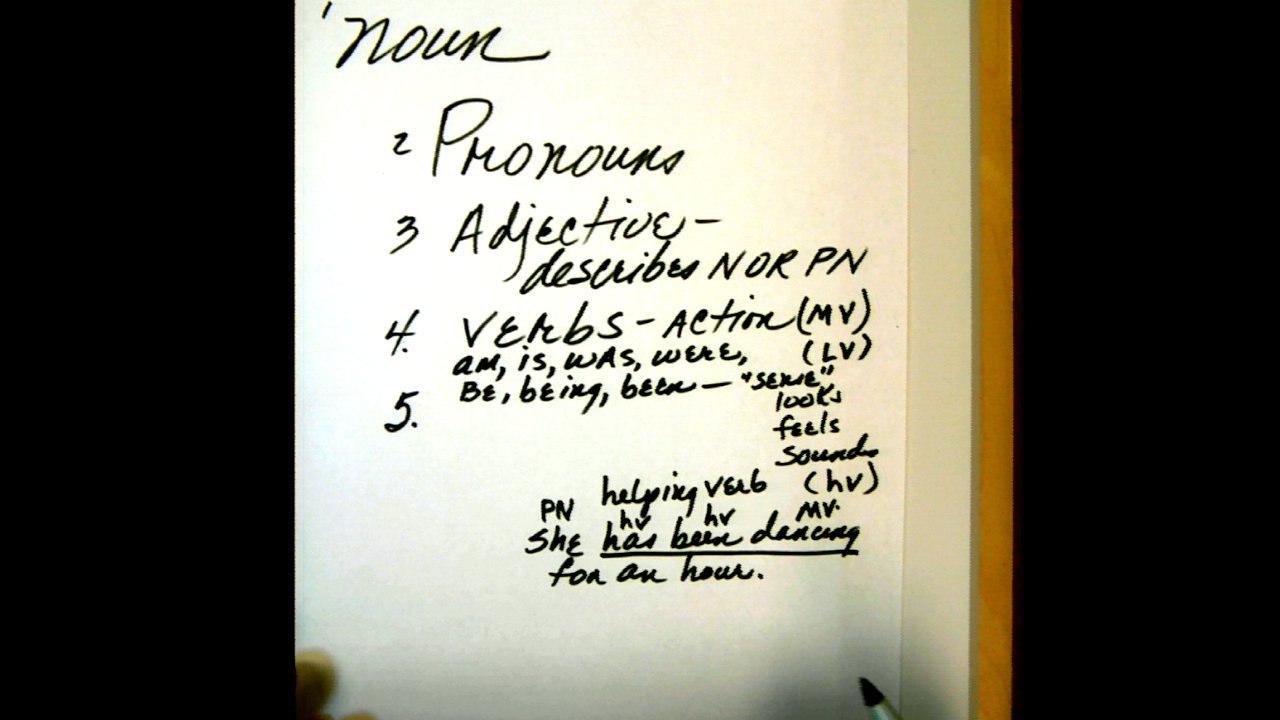 1 Noun
2 Pronouns
3 Adjective -
describes N OR PN
4. Verbs - Action (MV)
am, is, was, were, (LV)
Be, being, been — "sense"
looks
5.
feels
sounds
helping verb (hv)
PN hv hv MV.
She has been dancing
for an hour.